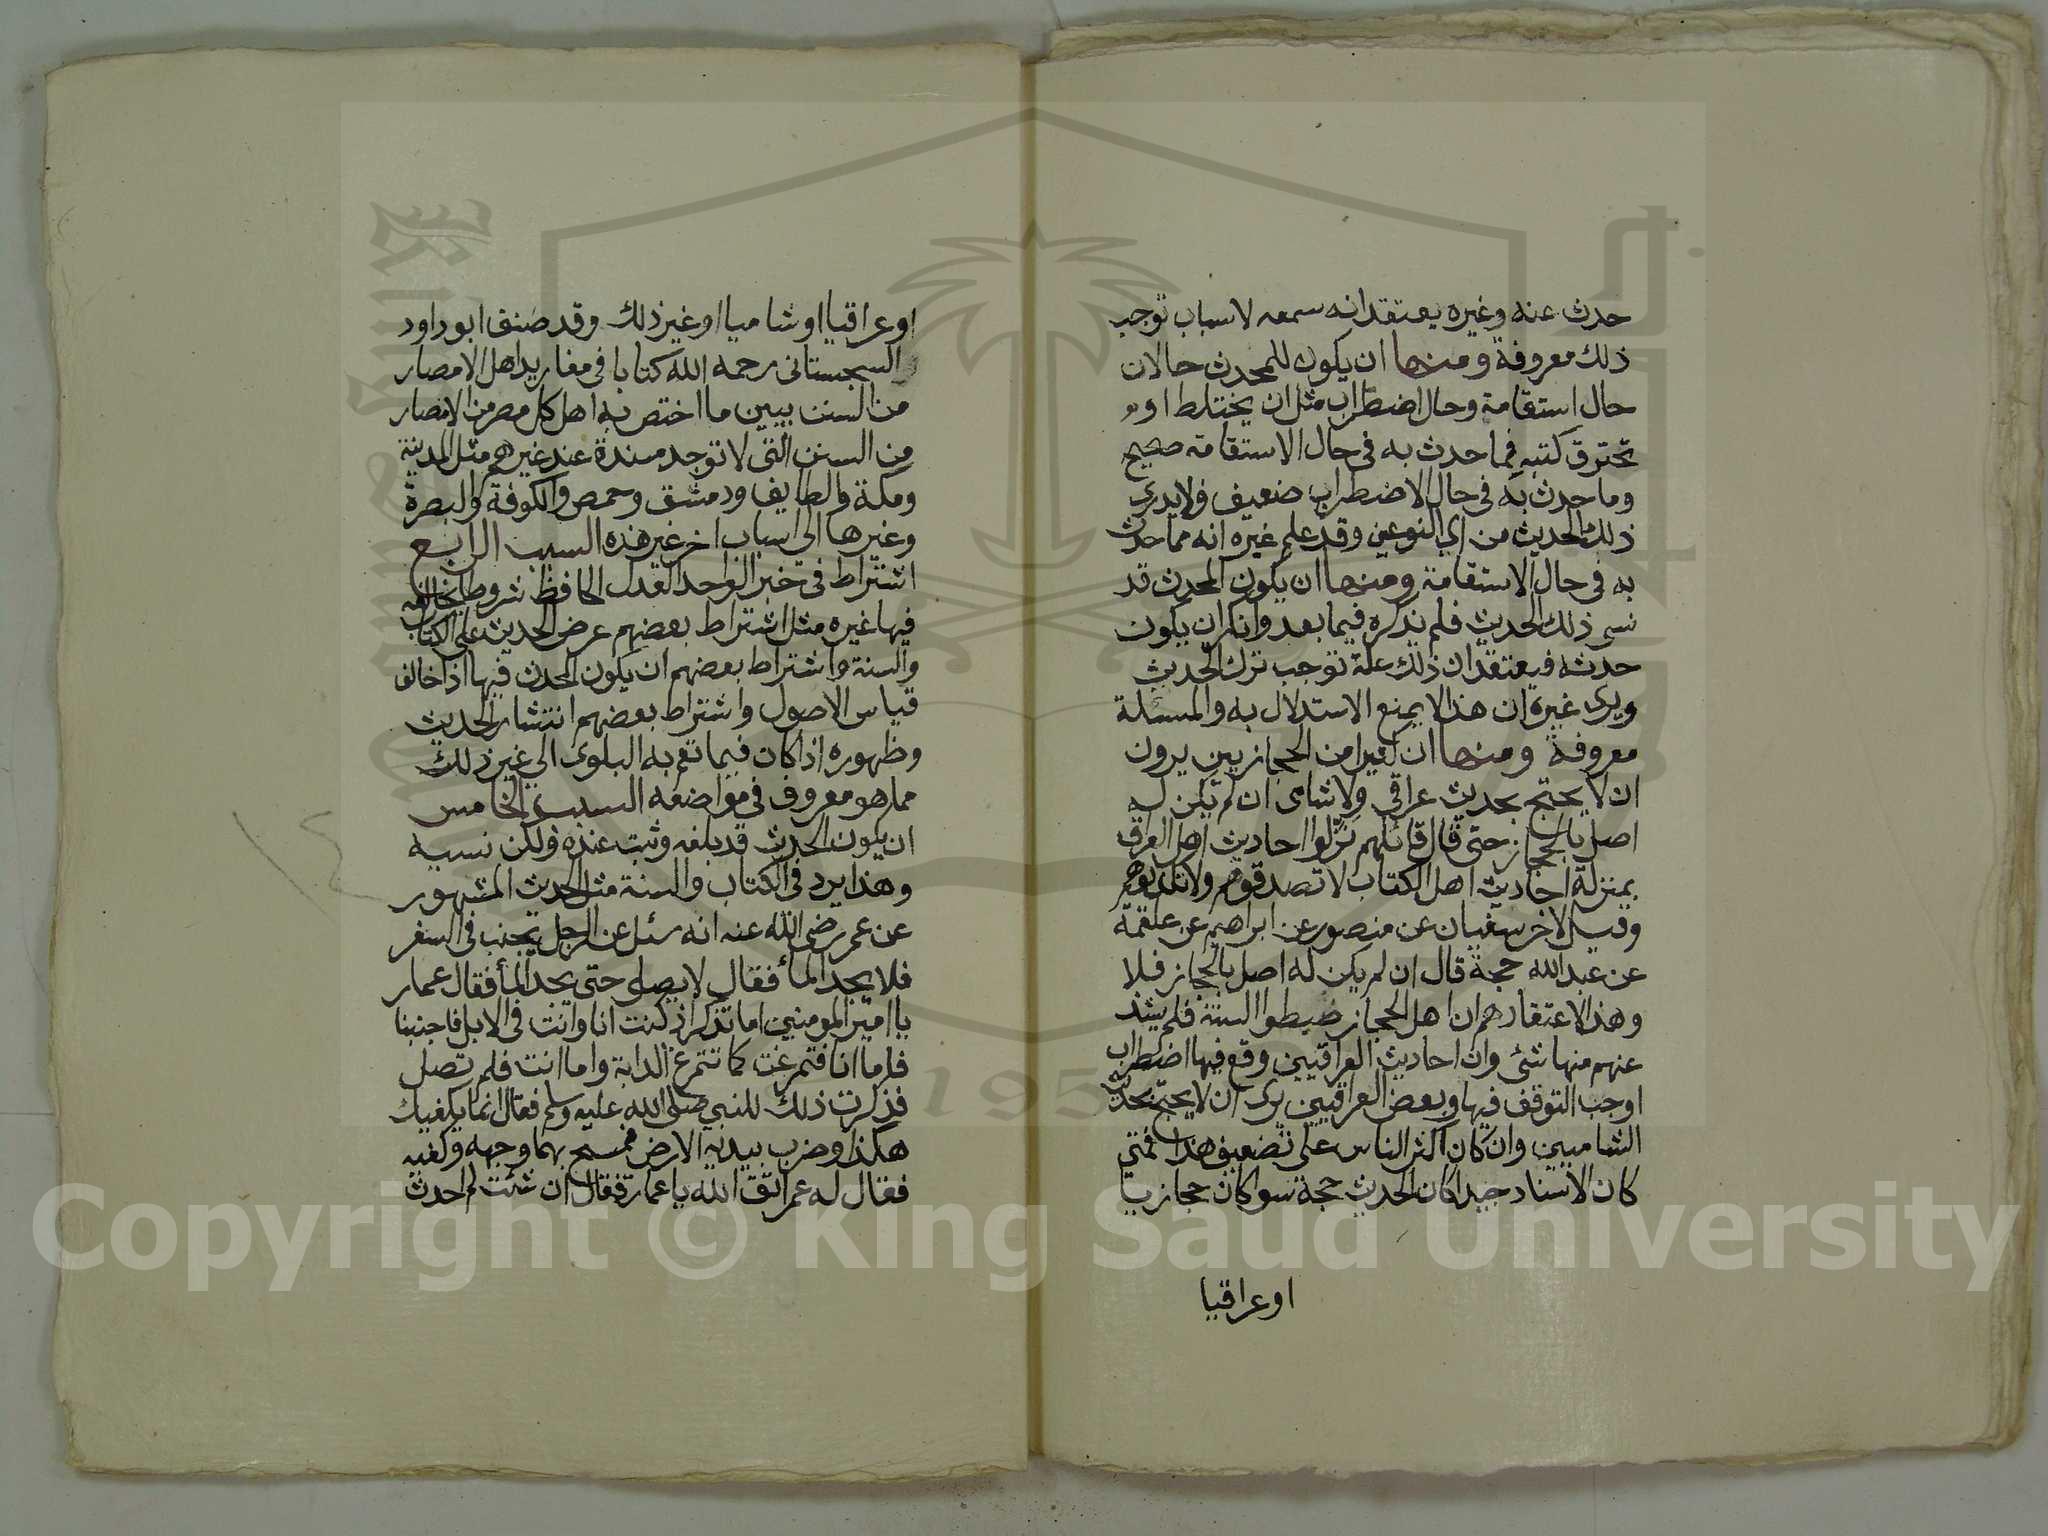 حدث عنه وغيره يعتقد انه سمعه لاسباب توجب
ذلك معروفة ومنها ان يكون للمحدث حالان
حال استقامة وحال اضطراب مثل ان يختلط او
تحترق كتبه فما حدث به في حال الاستقامة صحيح
وما حدث به في حال الاضطراب ضعيف فلا يدري
ذلك الحديث من اي النوعين وقد علم غيره انه مما حدث
به في حال الاستقامة ومنها ان يكون المحدث قد
نسى ذلك الحديث فلم يذكره فيما بعد وانكر ان يكون
حدثه فيعتقد ان ذلك علة توجب ترك الحديث
ويرى غيره ان هذا لا يمنع الاستدلال به والمسئلة
معروفة ومنها ان كثيرا من الحجازيين يرون
ان لا يحتج بحديث عراقي ولا شامى ان لم يكن له
اصل بالحجاز حتى قال قائلهم نزلوا احاديث اهل العراق
بمنزلة احاديث اهل الكتاب لا تصدقوهم ولا تكذبوهم
وقيل لاخر سفيان عن منصور عن ابراهيم عن علقمة
عن عبد الله حجة قال ان لم يكن له اصل بالحجاز فلا
وهذا لاعتقادهم ان اهل الحجاز ضبطوا السنة فلم يشذ
عنهم منها شئى وان احاديث العراقيين وقع فيها اضطراب
اوجب التوقف فيها وبعض العراقيين يرى ان لا يحتج بحديث
الشاميين وان كان اكثر الناس على تضعيف هذا فمتي
كان الاسناد جيدا كان الحديث حجة سو كان حجازيا
او عراقيا
او عراقيا او شاميا او غير ذلك وقد صنف ابو داود
السجستانى رحمه الله كتابا في مفاريد اهل الامصار
من السنن يبين ما اختص به اهل كل مصر من الامصار
من السنن التي لا توجد مسندة عند غيرهم مثل المدينة
ومكة والطايف ودمشق وحمص والكوفة والبصرة
وغيرها الى اسباب اخر غير هذه السبب الرابع
اشتراط في خبر الواحد العدل الحافظ شروطا يخالفه
فيها غيره مثل اشتراط بعضهم عرض الحديث على الكتاب
والسنة واشتراط بعضهم ان يكون المحدث فيها اذا خالف
قياس الاصول واشتراط بعضهم انتشار الحديث
وظهوره اذا كان فيما تعم به البلوى الي غير ذلك
مما هو معروف في مواضعه السبب الخامس
ان يكون الحديث قد بلغه وثبت عنده ولكن نسيه
وهذا يرد في الكتاب والسنة مثل الحديث المشهور
عن عمر رضي الله عنه انه سئل عن الرجل يجنب في السفر
فلا يجد الماء فقال لا يصلي حتى يجد الماء فقال عمار
يا امير المومنين اما تذكر اذ كنت انا وانت في الابل فاجنبنا
فاما انا فتمرغت كما تتمرغ الدابة واما انت فلم تصل
فذكرت ذلك للنبي صلى الله عليه وسلم فقال انما يكفيك
هكذا وضرب بيديه الارض فمسح بهما وجهه وكفيه
فقال له عمر اتق الله يا عمار فقال ان شئت لم احدث
Copyright © King Saud University
195